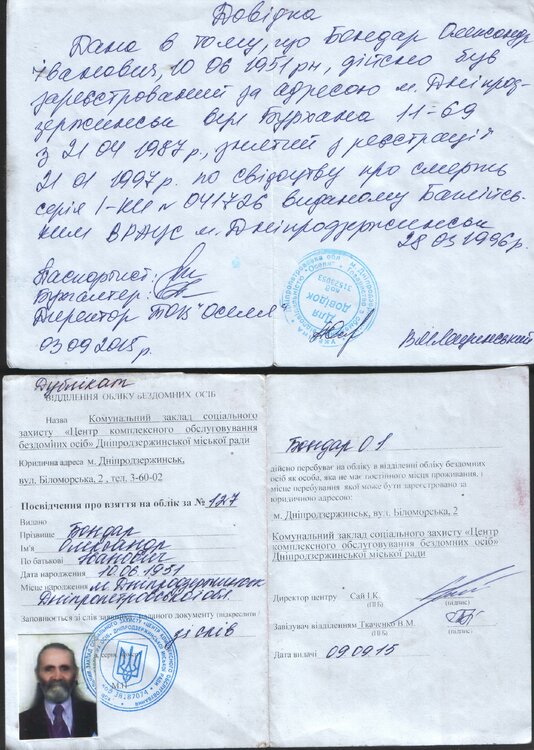 Довідка
Дана в тому, що Бондар Олександр
Іванович, 10 06 1951 рн, дійсно був
зареєстрований за адресою м. Дніпрод-
зержинськ вул Бурхана 11-69
з 21 04 1987 р., знятий з реєстрації
21 01 1997 р. по свідоцтву про смерть
серія І-КИ № 041726 виданому Баглійсь-
ким ВРАЦС м. Дніпродзержинськ
28 03 1996 р.
Паспортист:
Бухгалтер:
Директор ТОВ "Оселя"
03 09 2015 р.
Для
довідок
Дублікат
ВІДДІЛЕННЯ ОБЛІКУ БЕЗДОМНИХ ОСІБ
Назва Комунальний заклад соціального
захисту «Центр комплексного обслуговування
бездомних осіб» Дніпродзержинської міської ради
Юридична адреса м. Дніпродзержинськ,
вул. Біломорська, 2 , тел. 3-60-02
Посвідчення про взяття на облік за № 127
Видано
Прізвище Бондар
Ім'я Олександр
По батькові Іванович
Дата народження 10.06.1951
Місце народження м Дніпродзержинськ
Дніпропетровської обл
Заповнюється зі слів документу (підкреслити
зі слів
М.П
Бондар О І
дійсно перебуває на обліку в відділенні обліку бездомних
осіб як особа, яка не має постійного місця проживання, і
місце перебування якої може бути зареєстровано за
юридичною адресою:
м. Дніпродзержинськ, вул. Біломорська, 2
Комунальний заклад соціального захисту «Центр
комплексного обслуговування бездомних осіб»
Дніпродзержинської міської ради
Директор центру Сай І.К.
(ПІБ) (підпис)
Завідувач відділенням Ткаченко В.М
(ПІБ) (підпис)
Дата видачі 09.09.15